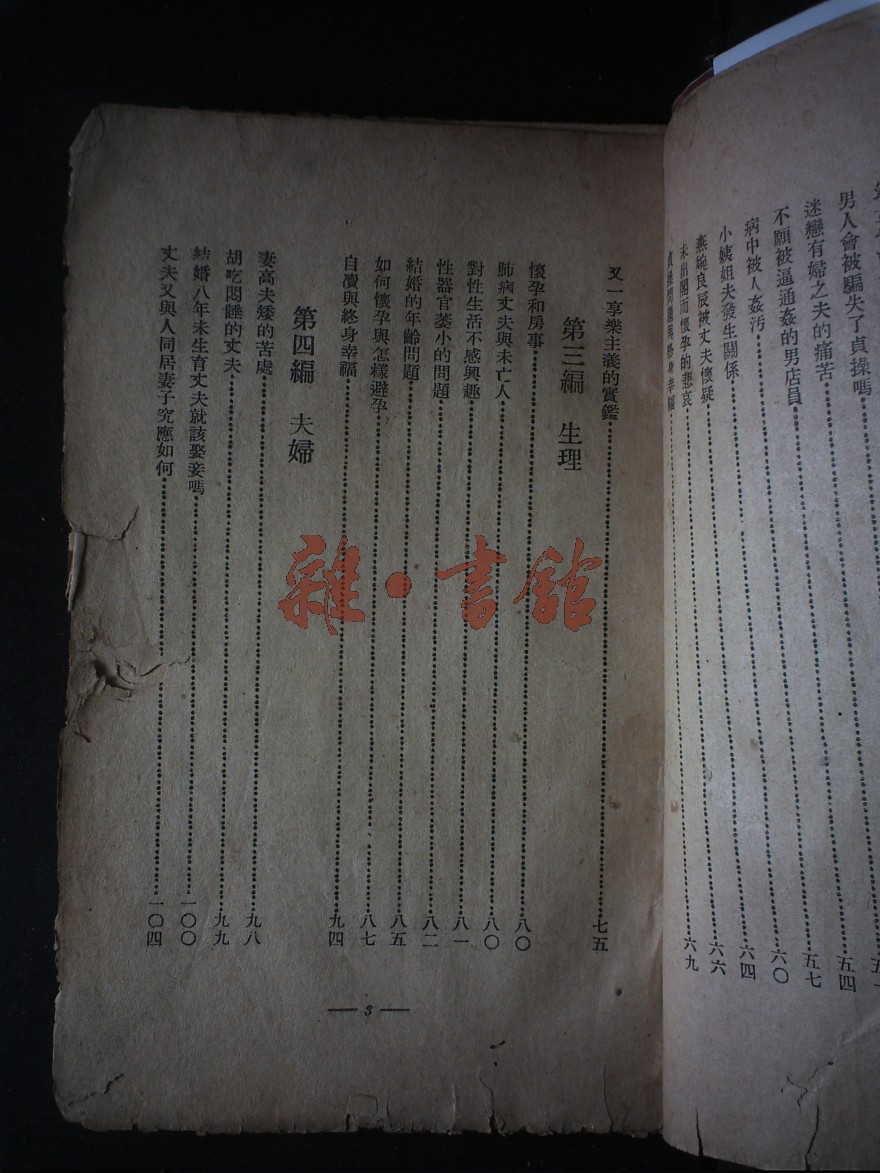 男人會被騙失了貞操嗎
五四
迷戀有婦之夫的痛苦
五七
不願被逼通姦的男店員
六〇
病中被人姦污
六四
小姨姐夫發生關係
六六
燕婉良辰被丈夫懷疑
六九
未出閣而懷孕的悲哀
又一享樂主義的實鑑
七五
第三編 生理
懷孕和房事
八〇
肺病丈夫與未亡人
八〇
對性生活不感興趣
八一
性器官萎小的問題
八二
結婚的年齡問題
八五
如何懷孕與怎樣避孕
八七
自瀆與終身幸福
九四
第四編 夫婦
妻高夫矮的苦處
九八
胡吃悶睡的丈夫
九九
結婚八年未生育丈夫就該娶妾嗎
一〇〇
丈夫又與人同居妻子究應如何
一〇四
— 3 —
雜·書館